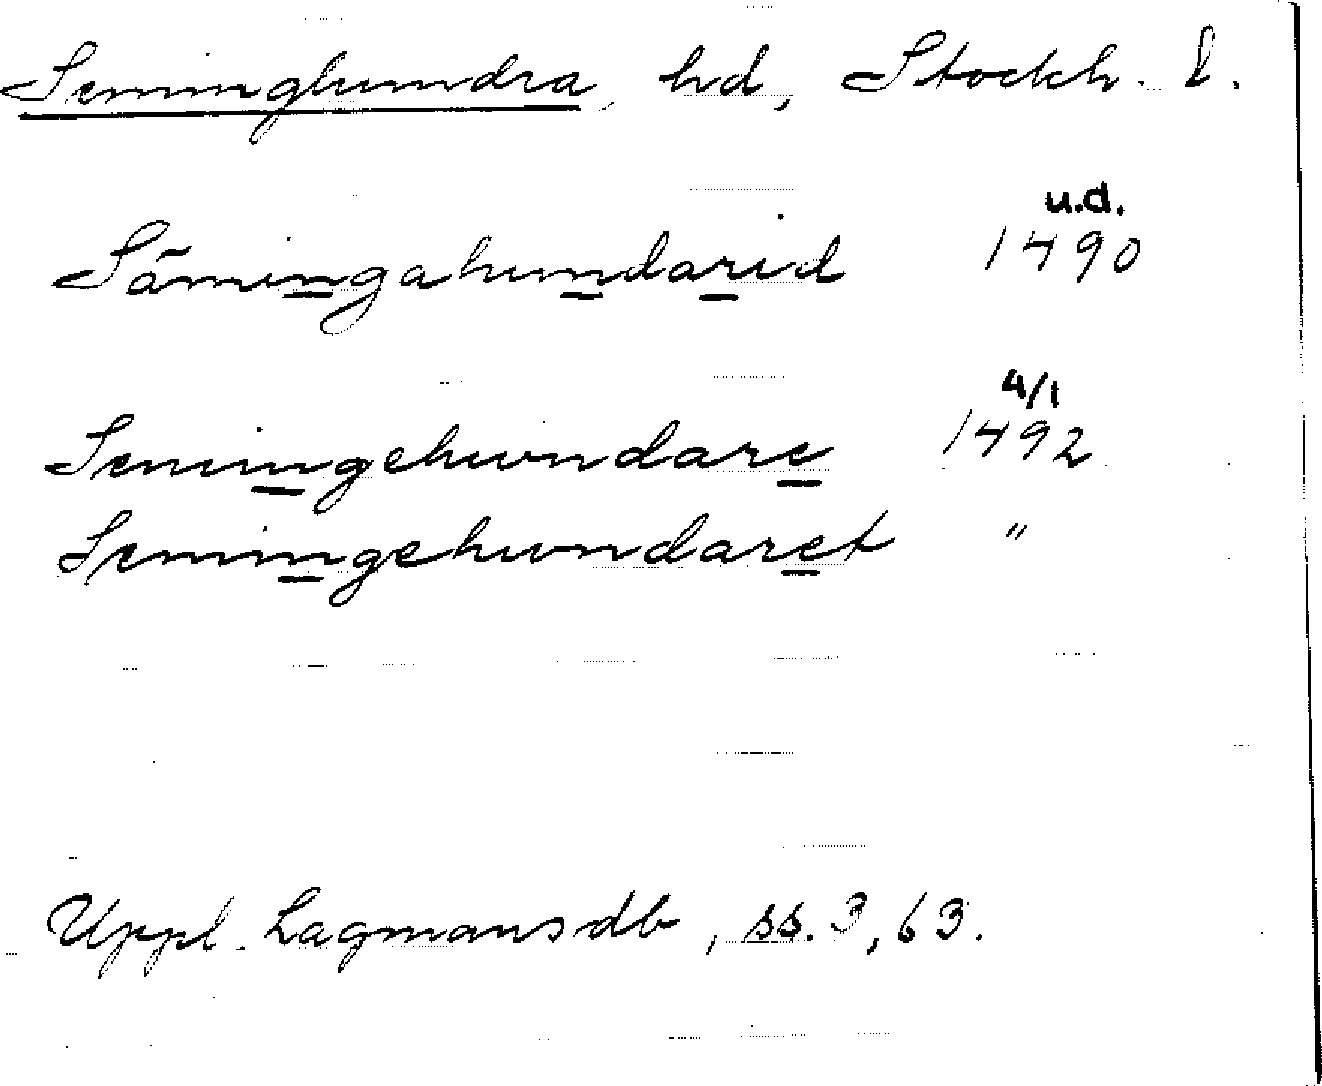 Seminghundra, hd, Stockh. l.
u.d.
Sämingahundarid 1490
4/1
Semingehundare 1492
Semingehundaret "
Uppl. Lagmansdb, ss. 3, 63.